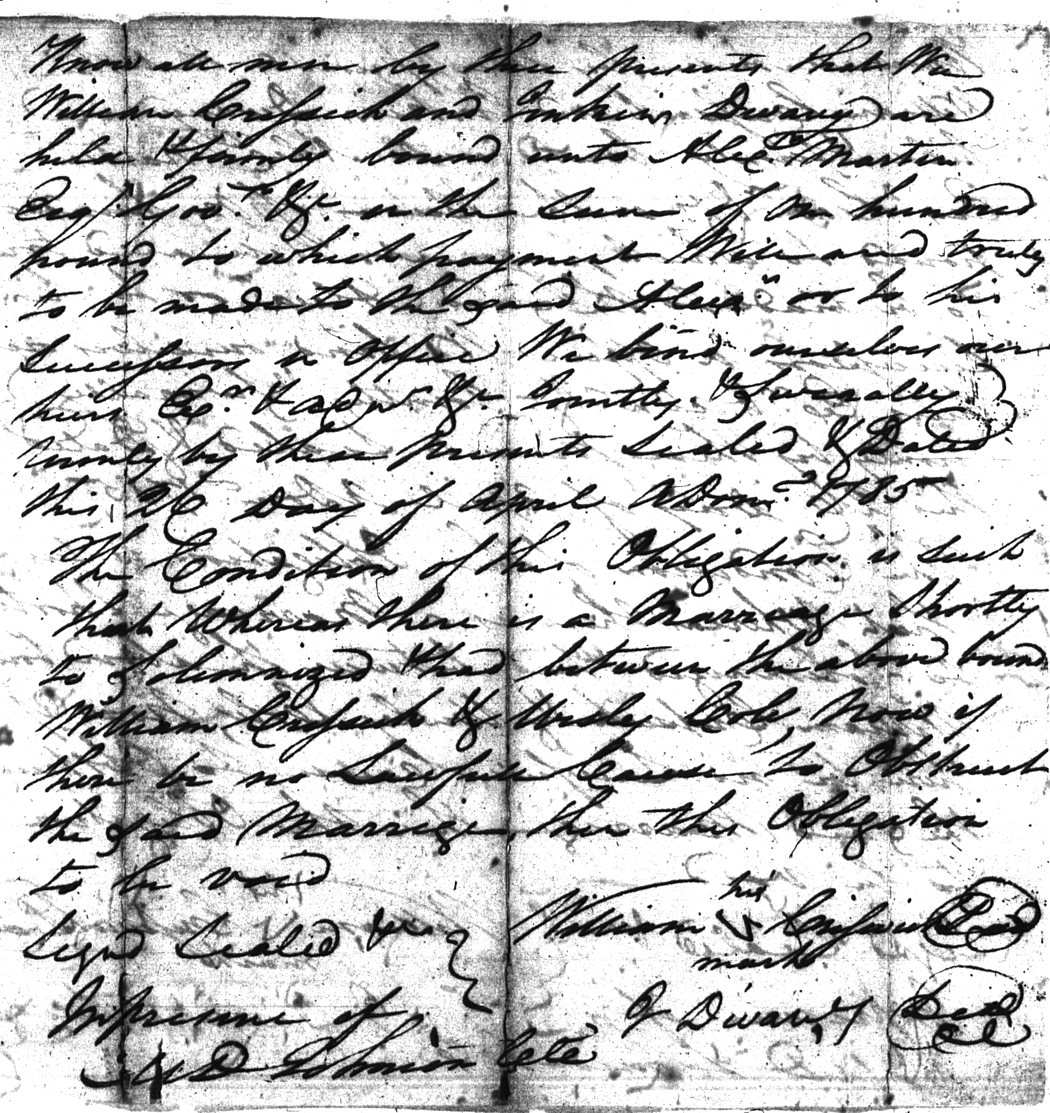 Know all men by these presents that We
William Cressick and Jenkins Divany are
held & firmly bound unto Alex.r Martin
Esq.r Gov.r &c. in the sum of one hundred
pound to which payment Will and truly
to be made to the said Alex.r or to his
Successors in Office We bind ourselves our
heirs Ex.rs & adm.rs &c. Jointly & severally
by these presents Sealed & Dated
this 26 Day of April A Dom. 1785
The Condition of this Obligation is such
that Whereas there is a Marriage Shortly
to Solemnized & had between the above bound
William Cressick & Cole, Now if
there be no Lawfull Cause to Obstruct
the said Marriage, then this Obligation
to be void
Signd Sealed
William his Cressick Seal
mark
In presence of
J Divany Seal
Johnson